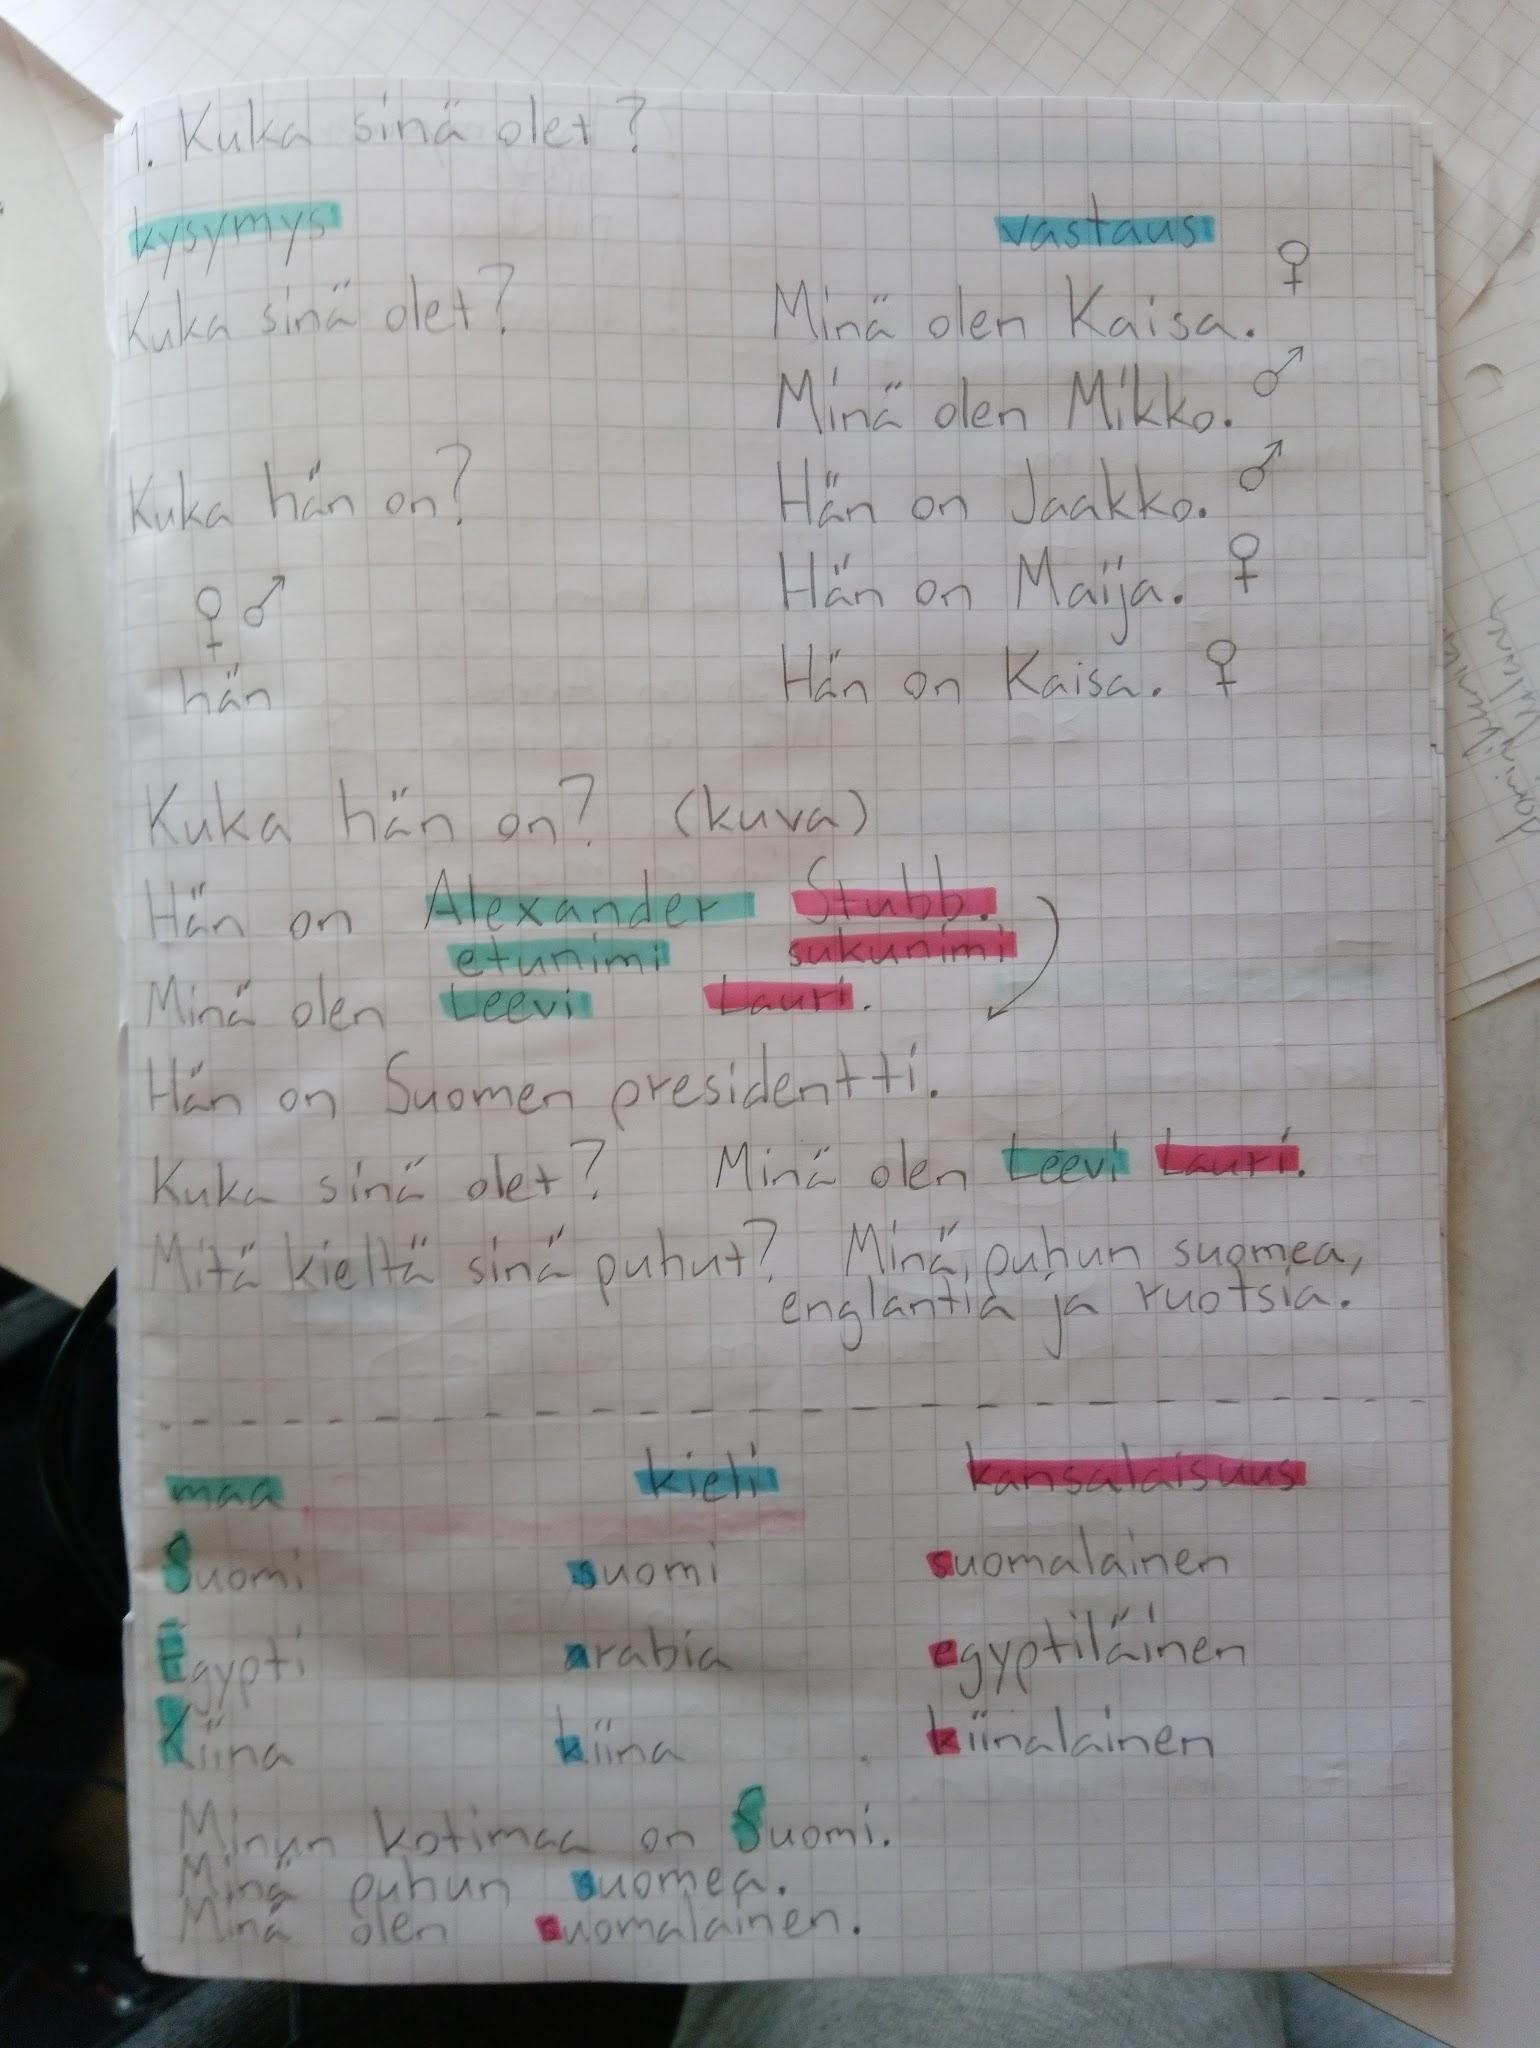 1. Kuka sinä olet?
kysymys vastaus
Kuka sinä olet? Minä olen Kaisa. ♀
Minä olen Mikko. ♂
Kuka hän on? Hän on Jaakko. ♂
♀ ♂ Hän on Maija. ♀
hän Hän on Kaisa. ♀
Kuka hän on? (kuva)
Hän on Alexander Stubb.
etunimi sukunimi
Minä olen Leevi Lauri.
Hän on Suomen presidentti.
Kuka sinä olet? Minä olen Leevi Lauri.
Mitä kieltä sinä puhut? Minä puhun suomea,
englantia ja ruotsia.
maa kieli kansalaisuus
Suomi suomi suomalainen
Egypti arabia egyptiläinen
Kiina kiina kiinalainen
Minun kotimaa on Suomi.
Minä puhun suomea.
Minä olen suomalainen.